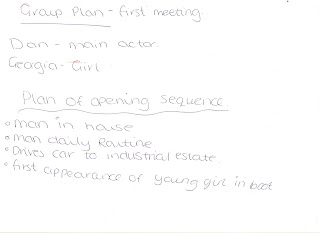 Group Plan - first meeting.
Dan - main actor.
Georgia - Girl
Plan of opening sequence
• man in house
• man daily Routine.
• Drives car to industrial estate
• first appearance of young girl in boot